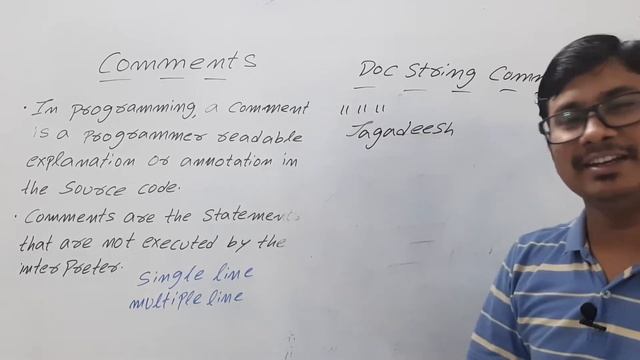 Comments
· In programming, a comment
is a programmer readable
explanation or annotation in
the source code.
· Comments are the Statements
that are not executed by the
interpreter.
single line
multiple line
Doc String Comm
" " "
Jagadeesh